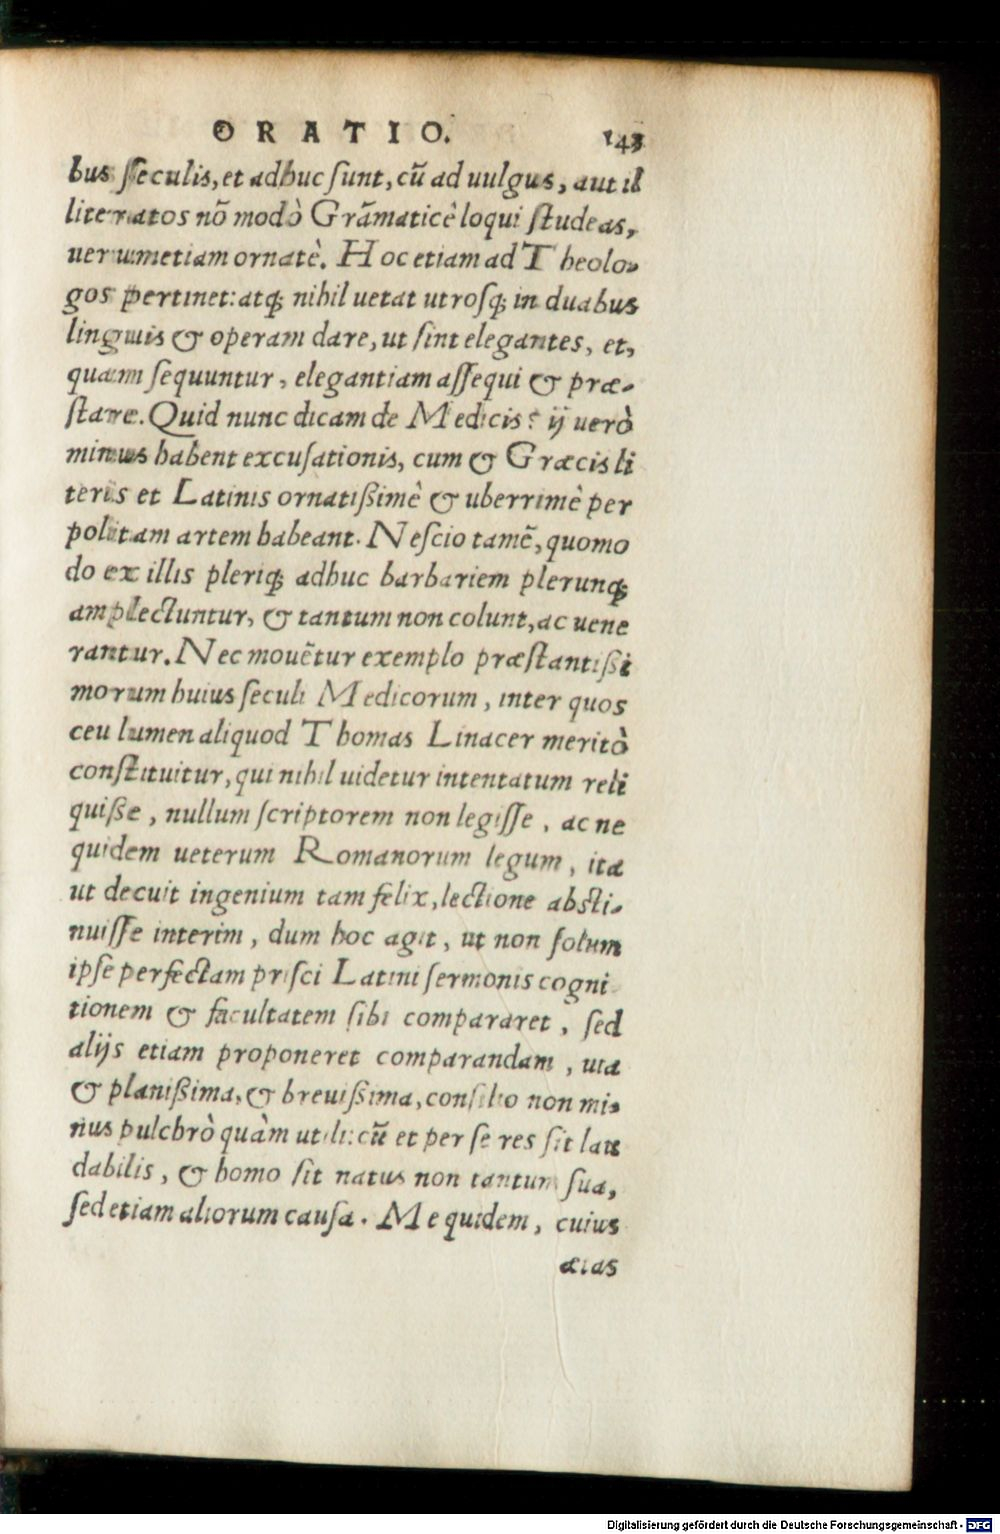 ORATIO. 143
bus ſeculis, et adhuc ſunt, cū ad uulgus, aut il
literatos nō modò Grāmaticè loqui ſtudeas,
uerumetiam ornatè. Hoc etiam ad Theolo-
gos pertinet: atq; nihil uetat utroſq; in duabus
linguis & operam dare, ut ſint elegantes, et,
quam ſequuntur, elegantiam aſſequi & præ-
ſtare. Quid nunc dicam de Medicis? ij uerò
minus habent excuſationis, cum & Græcis li
teris et Latinis ornatißimè & uberrimè per
politam artem habeant. Neſcio tamē, quomo
do ex illis pleriq; adhuc barbariem plerunq;
amplectuntur, & tantum non colunt, ac uene
rantur. Nec mouētur exemplo præſtantißi
morum huius ſeculi Medicorum, inter quos
ceu lumen aliquod Thomas Linacer meritò
conſtituitur, qui nihil uidetur intentatum reli
quiße, nullum ſcriptorem non legiſſe, ac ne
quidem ueterum Romanorum legum, ita
ut decuit ingenium tam felix, lectione abſti-
nuiſſe interim, dum hoc agit, ut non ſolum
ipſe perfectam priſci Latini ſermonis cogni
tionem & facultatem ſibi compararet, ſed
alijs etiam proponeret comparandam, uia
& planißima, & breuißima, conſilio non mi-
nus pulchrò quàm utili: cū et per ſe res ſit lau
dabilis, & homo ſit natus non tantum ſua,
ſed etiam aliorum cauſa. Me quidem, cuius
ætas
Digitalisierung gefördert durch die Deutsche Forschungsgemeinschaft - DFG